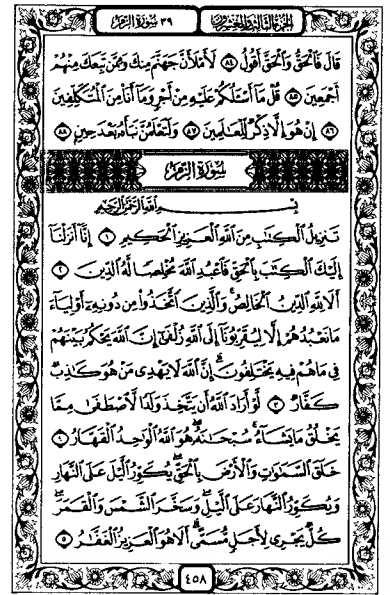 الجزء الثالث والعشرون ٣٩ سورة الزمر
قَالَ فَٱلْحَقُّ وَٱلْحَقَّ أَقُولُ ٨٤ لَأَمْلَأَنَّ جَهَنَّمَ مِنكَ وَمِمَّن تَبِعَكَ مِنْهُمْ
أَجْمَعِينَ ٨٥ قُلْ مَآ أَسْـَٔلُكُمْ عَلَيْهِ مِنْ أَجْرٍ وَمَآ أَنَا۠ مِنَ ٱلْمُتَكَلِّفِينَ
٨٦ إِنْ هُوَ إِلَّا ذِكْرٌ لِّلْعَٰلَمِينَ ٨٧ وَلَتَعْلَمُنَّ نَبَأَهُۥ بَعْدَ حِينٍ ٨٨
سورة الزمر
بِسْمِ ٱللَّهِ ٱلرَّحْمَٰنِ ٱلرَّحِيمِ
تَنزِيلُ ٱلْكِتَٰبِ مِنَ ٱللَّهِ ٱلْعَزِيزِ ٱلْحَكِيمِ ١ إِنَّآ أَنزَلْنَآ
إِلَيْكَ ٱلْكِتَٰبَ بِٱلْحَقِّ فَٱعْبُدِ ٱللَّهَ مُخْلِصًا لَّهُ ٱلدِّينَ ٢
أَلَا لِلَّهِ ٱلدِّينُ ٱلْخَالِصُ ۚ وَٱلَّذِينَ ٱتَّخَذُوا۟ مِن دُونِهِۦٓ أَوْلِيَآءَ
مَا نَعْبُدُهُمْ إِلَّا لِيُقَرِّبُونَآ إِلَى ٱللَّهِ زُلْفَىٰٓ إِنَّ ٱللَّهَ يَحْكُمُ بَيْنَهُمْ
فِى مَا هُمْ فِيهِ يَخْتَلِفُونَ ۗ إِنَّ ٱللَّهَ لَا يَهْدِى مَنْ هُوَ كَٰذِبٌ
كَفَّارٌ ٣ لَّوْ أَرَادَ ٱللَّهُ أَن يَتَّخِذَ وَلَدًا لَّٱصْطَفَىٰ مِمَّا
يَخْلُقُ مَا يَشَآءُ ۚ سُبْحَٰنَهُۥ ۖ هُوَ ٱللَّهُ ٱلْوَٰحِدُ ٱلْقَهَّارُ ٤
خَلَقَ ٱلسَّمَٰوَٰتِ وَٱلْأَرْضَ بِٱلْحَقِّ ۖ يُكَوِّرُ ٱلَّيْلَ عَلَى ٱلنَّهَارِ
وَيُكَوِّرُ ٱلنَّهَارَ عَلَى ٱلَّيْلِ ۖ وَسَخَّرَ ٱلشَّمْسَ وَٱلْقَمَرَ ۖ
كُلٌّ يَجْرِى لِأَجَلٍ مُّسَمًّى ۗ أَلَا هُوَ ٱلْعَزِيزُ ٱلْغَفَّٰرُ ٥
٤٥٨